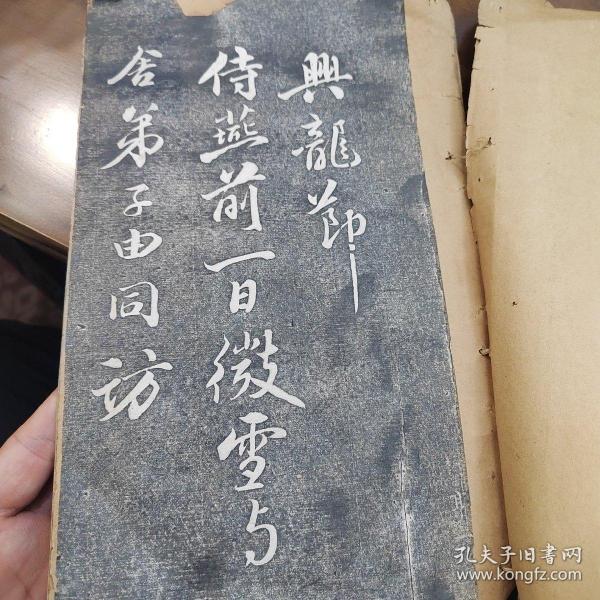 興龍節
侍燕前一日微雪与
舍弟子由同訪
孔夫子旧書网
www.kongfz.com